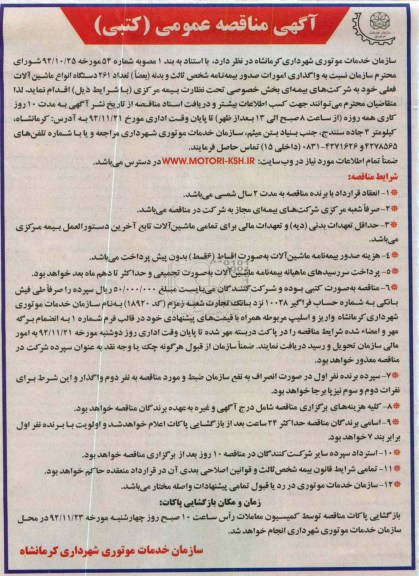 آگهی مناقصه عمومی (کتبی)
سازمان خدمات موتوری شهرداری کرمانشاه در نظر دارد، با استناد به بند ۱ مصوبه شماره ۵۳ مورخه ۹۲/۱۰/۲۵ شورای
محترم سازمان نسبت به واگذاری امورات صدور بیمه‌نامه شخص ثالث و بدنه (بعضاً) تعداد ۲۶۱ دستگاه انواع ماشین‌آلات
فعلی خود به شرکت‌های بیمه‌ای بخش خصوصی تحت نظارت بیمه مرکزی (با شرایط ذیل) اقدام نماید، لذا
متقاضیان محترم می‌توانند جهت کسب اطلاعات بیشتر و دریافت اسناد مناقصه از تاریخ نشر آگهی به مدت ۱۰ روز
کاری همه روزه (از ساعت ۸ صبح الی ۱۳ بعداز ظهر) تا پایان وقت اداری مورخ ۹۲/۱۱/۲۱ به آدرس: کرمانشاه،
کیلومتر ۳ جاده سنندج، جنب بنیاد بتن میثم، سازمان خدمات موتوری شهرداری مراجعه و یا با شماره تلفن‌های
۴۲۷۸۵۶۵ و ۴۲۷۱۶۲۶-۰۸۳۱ (داخلی ۱۵) تماس حاصل فرمایند.
ضمناً تمام اطلاعات مورد نیاز در وب‌سایت: WWW.MOTORI-KSH.IR در دسترس می‌باشد.
شرایط مناقصه:
۱- انعقاد قرارداد با برنده مناقصه به مدت ۲ سال شمسی می‌باشد.
۲- صرفاً شعبه مرکزی شرکت‌های بیمه‌ای مجاز به شرکت در مناقصه می‌باشد.
۳- حداقل تعهدات بدنی (دیه) و تعهدات مالی برای تمامی ماشین‌آلات تابع آخرین دستورالعمل بیمه مرکزی
می‌باشد.
۴- هزینه صدور بیمه‌نامه ماشین‌آلات به‌صورت اقساط (۶قسط) بدون پیش پرداخت می‌باشد.
۵- پرداخت سررسیدهای ماهیانه بیمه‌نامه ماشین‌آلات به‌صورت تجمیعی و حداکثر تا دهم ماه بعد خواهد بود.
۶- مناقصه به‌صورت کتبی بوده و شرکت‌کنندگان می‌بایست مبلغ ۵۰/۰۰۰/۰۰۰ ریال سپرده را صرفاً طی فیش
بانکی به شماره حساب فراگیر ۱۰۰۲۸ نزد بانک تجارت شعبه زمزم (کد ۱۸۹۲۰) به‌نام سازمان خدمات موتوری
شهرداری کرمانشاه واریز و اسلیپ مربوطه همراه با قیمت‌های پیشنهادی خود در قالب فرم شماره ۱ به انضمام برگه
مهر و امضاء شده شرایط مناقصه را در پاکت دربسته مهر شده تا پایان وقت اداری روز دوشنبه مورخه ۹۲/۱۱/۲۱ به امور
مالی سازمان تحویل و رسید دریافت نمایند. ضمناً سازمان از قبول هرگونه چک یا وجه نقد به عنوان سپرده شرکت در
مناقصه معذور خواهد بود.
۷- سپرده برنده نفر اول در صورت انصراف به نفع سازمان ضبط و مورد مناقصه به نفر دوم واگذار و این شرط برای
نفرات دوم و سوم نیز پا برجا خواهد بود.
۸- کلیه هزینه‌های برگزاری مناقصه شامل درج آگهی و غیره به عهده برندگان مناقصه خواهد بود.
۹- اسامی برندگان مناقصه حداکثر ۲۴ ساعت بعد از بازگشایی پاکات اعلام خواهد شد و اولویت با برنده نفر اول
برابر بند ۷ خواهد بود.
۱۰- استرداد سپرده سایر شرکت‌کنندگان در مناقصه ۱۰ روز بعد از برگزاری مناقصه خواهد بود.
۱۱- تمامی شرایط قانون بیمه شخص ثالث و قوانین اصلاحی بعدی آن در قرارداد منعقده حاکم خواهد بود.
۱۲- سازمان خدمات موتوری در رد یا قبول تمامی پیشنهادات واصله مختار می‌باشد.
زمان و مکان بازگشایی پاکات:
بازگشایی پاکات مناقصه توسط کمیسیون معاملات رأس ساعت ۱۰ صبح روز چهارشنبه مورخه ۹۲/۱۱/۲۳ در محل
سازمان خدمات موتوری شهرداری انجام خواهد شد.
سازمان خدمات موتوری شهرداری کرمانشاه